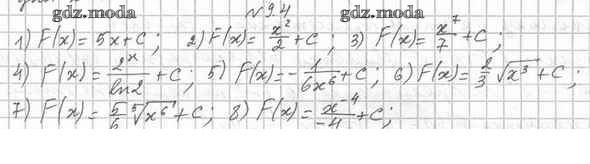 № 9.4
gdz.moda gdz.moda
1) F(x) = 5x + C; 2) F(x) = x²/2 + C; 3) F(x) = x⁷/7 + C;
4) F(x) = 2ˣ/ln2 + C; 5) F(x) = -1/6x⁶ + C; 6) F(x) = 2/3 √x³ + C;
7) F(x) = 5/6 ⁵√x⁶ + C; 8) F(x) = x⁻⁴/-4 + C;